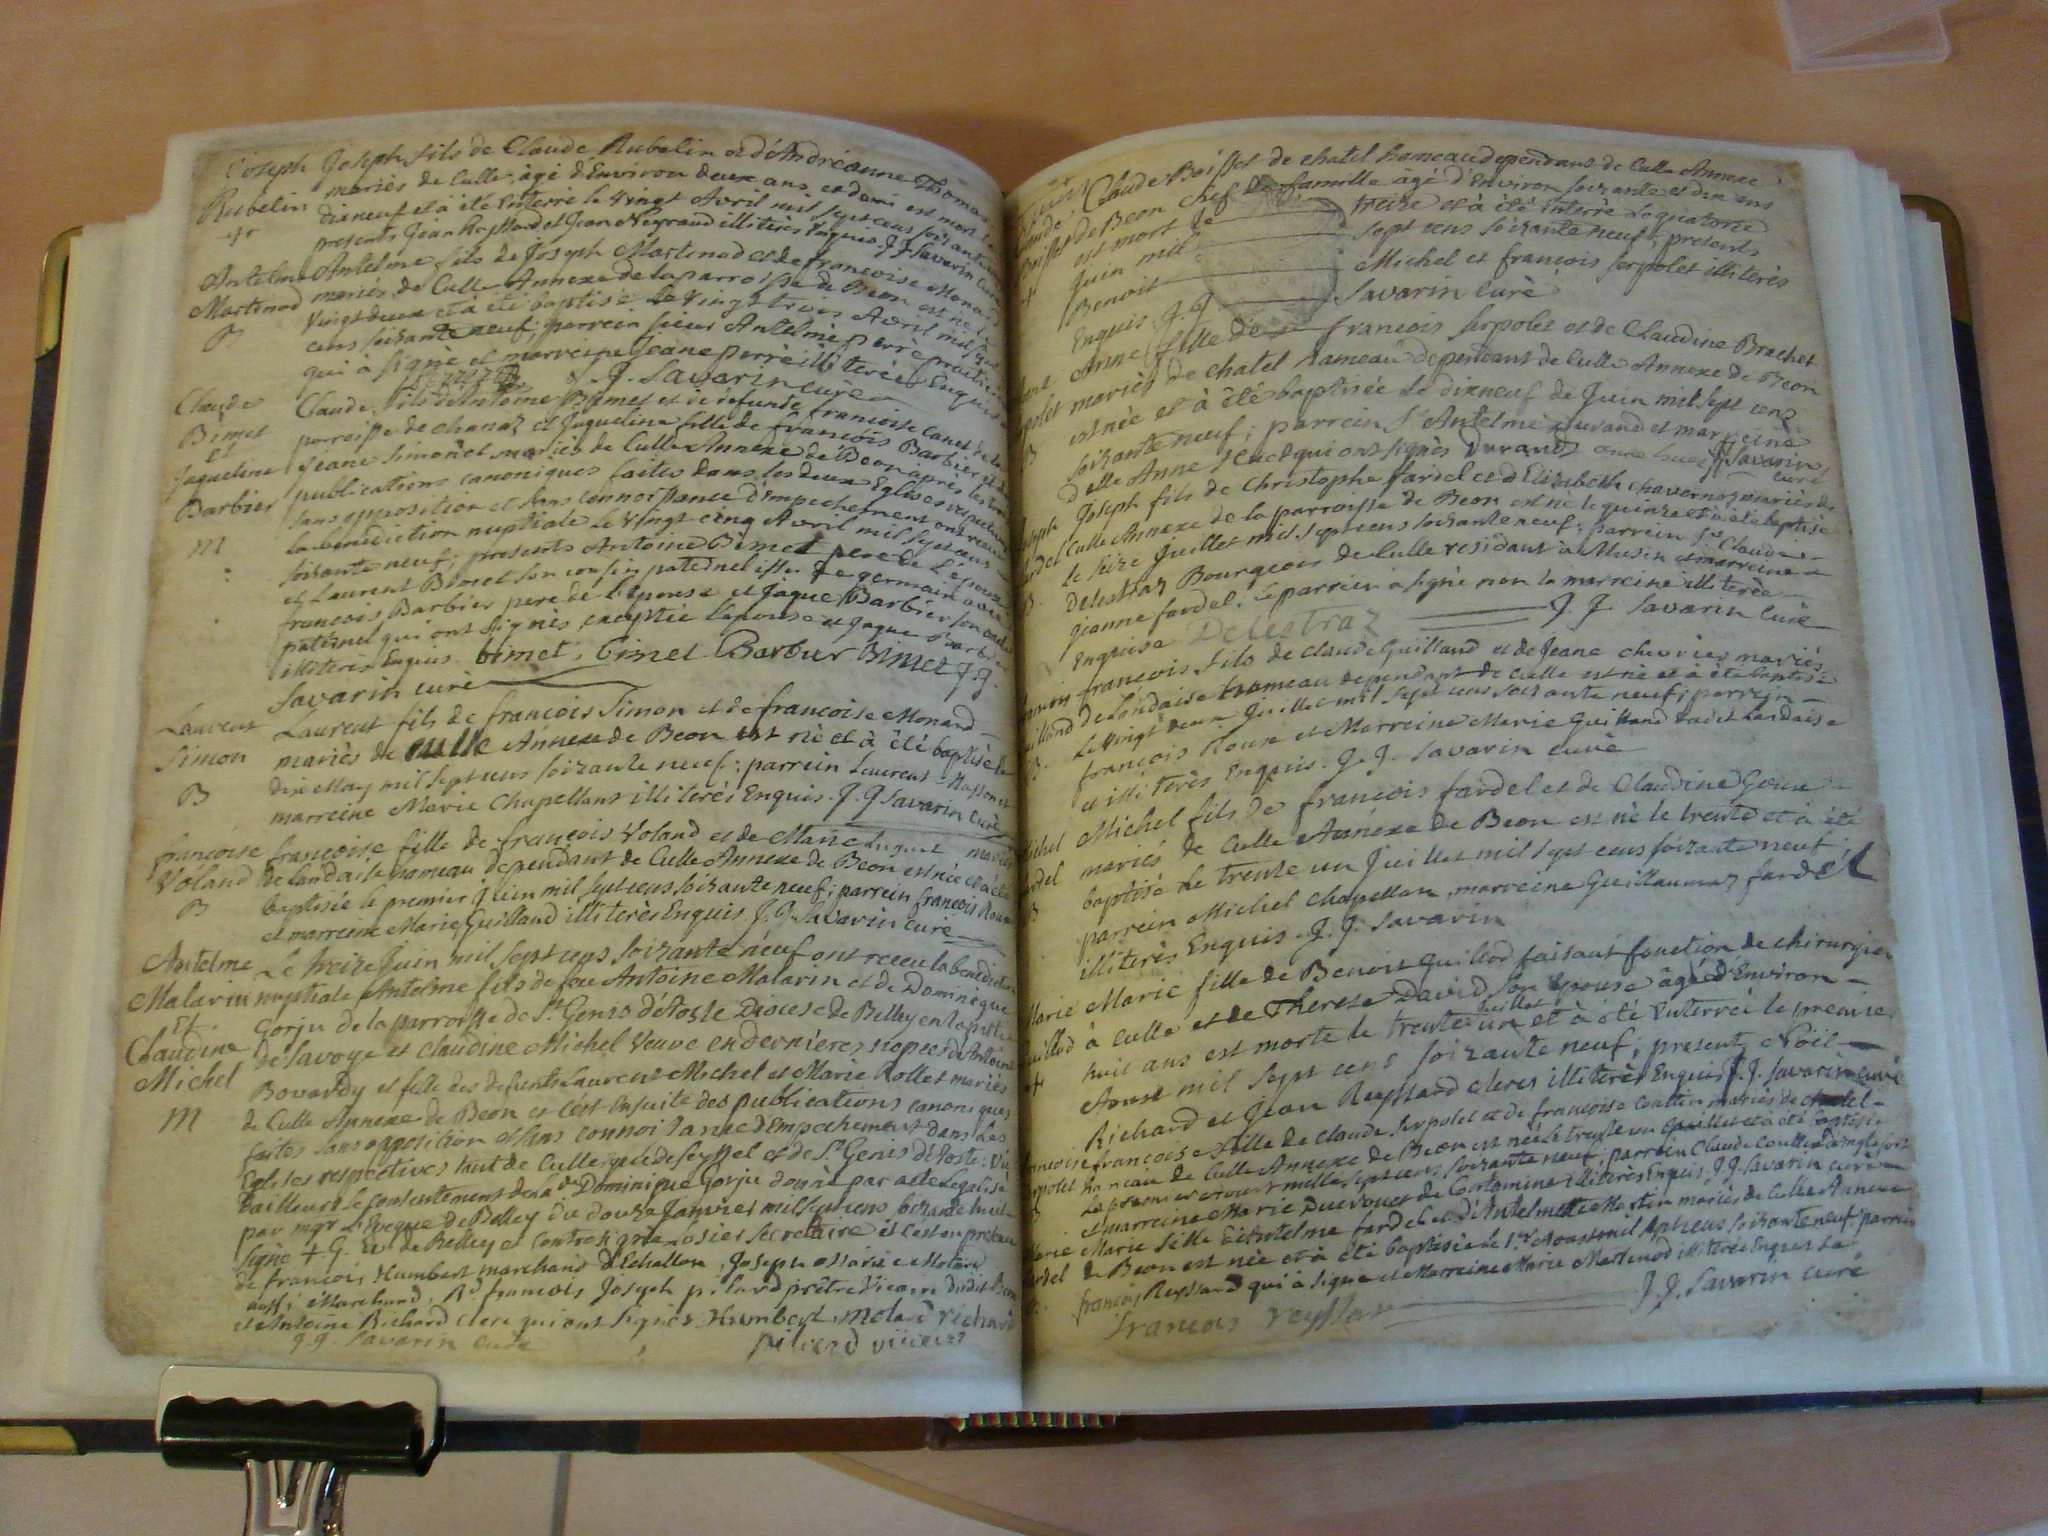 Joseph Joseph fils de Claude Rubelin et d'Andréanne Thomas
Rubelin mariès de Culle, âgè d'Environ deux ans et demi est mort le
dixneuf et à étè Enterrè le Vingt Avril mil sept cens soixante neuf
presents Jean Reyssard et Jean Neyraud illiterès Enquis. J. J. Savarin Curè
Antelme Antelme fils de Joseph Martinod et de francoise Monard
Martinod mariès de Culle Annexe de la parroisse de Beon est nè le
B Vingt deux et à étè baptisè Le Vingt trois Avril mil sept
cens soixante neuf; parrein sieur Antelme perrè praticien
qui à signè et marreine Jeane perrè illiterèe Enquise
J. J. Savarin curè
Claude Claude fils de Antoine Bimet et de defunte francoise Canet de la
Bimet parroisse de Chanaz et Jaqueline fille de francois Barbier et de
Et Jeane Simonet mariès de Culle Annexe de Beon après les trois
Jaqueline publications canoniques faites dans les deux Eglises respectives
Barbier sans opposition et sans connoissance d'empechement ont receu
M la benediction nuptiale Le Vingt cinq Avril mil sept cens
soixante neuf; presents Antoine Bimet pere de L'epoux
et Laurent Bimet son cousin paternel issu de germain avec
francois Barbier pere de l'Epouse et Jaque Barbier son oncle
paternel qui ont signès exceptée l'epouse et Jaque Barbier
illiterès Enquis. bimet, bimet Barbier Bimet J. J.
Savarin curè
Laurent Laurent fils de francois Simon et de francoise Monard
Simon mariès de Culle Annexe de Beon est nè et à étè baptisè le
B dix May mil sept cens soixante neuf; parrein Laurent Masson et
marreine Marie Chapellans illiterès Enquis. J. J Savarin Curè
francoise francoise fille de francois Voland et de Marie Luquet mariès
Voland de Landaise hameau dependant de Culle Annexe de Beon est nèe et à étè
B baptisèe le premier Juin mil sept cens soixante neuf; parrein francois Roux
et marreine Marie Guilland illiterès Enquis. J. J. Savarin curè
Antelme Le treize Juin mil sept cens soixante neuf ont receu la benediction
Malarin nuptiale Antelme fils de feu Antoine Malarin et de Dominique
Et Gorju de la parroisse de St Genis d'Aoste Diocese de Belley en la partie
Claudine de Savoye et Claudine Michel Veuve en dernières nopces d'Antoine
Michel Bovardy et fille des defunts Laurent Michel et Marie Rollet mariès
M de Culle Annexe de Beon et c'est Ensuite des publications canoniques
faites sans opposition et sans connoissance d'Empechement dans les
Eglises respectives tant de Culle que de Seyssel et de St Genis d'Aoste: Vû
d'ailleurs le consentement de la de Dominique Gorju donnè par acte Legalisè
par mgr L'Eveque de Belley du douze Janvier mil sept cens soixante neuf
signè + G. Ev. de Belley et contresignè secretaire et c'est en presence
de francois Humbert marchand d'Echallon, Joseph Marie Molard
aussi Marchand, Rd francois Joseph pilard prêtre Vicaire dudit Beon
et Antoine Richard clerc qui ont signès Humbert, Molard richard
J. J. Savarin curè pillard vicaire
Claude Boisset de chatel hameau dependant de Culle Annexe
de Beon chef de famille âgè d'Environ soixante et dix ans
est mort Le treize et à étè Enterrè Le quatorze
Juin mil sept cens soixante neuf; presents
Benoit Michel et francois serpolet illiterès
Enquis. J. J. Savarin curè
Anne fille de francois serpolet et de Claudine Brachet
mariès de chatel hameau dependant de Culle Annexe de Beon
est nèe et à étè baptisèe Le dixneuf de Juin mil sept cens
soixante neuf; parrein Sr Antelme Durand et marreine
delle Anne suez qui ont signès Durand anne suez J. J. Savarin
curè
Joseph fils de Christophe fardel et d'Elizabeth chavernoz mariès de
Culle Annexe de la parroisse de Beon est nè le quinze et à étè baptisè
le seize Juillet mil sept cens soixante neuf; parrein Sr Claude
Delestraz Bourgeois de Culle residant à Musin et marreine
Jeanne fardel. Le parrein à signè non la marreine illiterèe
Enquise Delestraz J. J. Savarin Curè
francois fils de Claude Guilland et de Jeane chevrier mariès
de Landaise hameau dependant de Culle est nè et à étè baptisè
Le Vingt deux Juillet mil sept cens soixante neuf; parrein
francois Roux et Marreine Marie Guilland dudit Landaise
et illiterès Enquis. J. J. Savarin curè
Michel fils de francois fardel et de Claudine Goux
mariès de Culle Annexe de Beon est nè le trente et à étè
baptisè Le trente un Juillet mil sept cens soixante neuf
parrein Michel Chapellan, marreine Guillaumaz fardel
illiterès Enquis. J. J. Savarin
Marie fille de Benoit Guillod faisant fonction de chirurgien
à Culle et de Therese David son Epouse âgèe d'Environ
huit ans est morte le trente un Juillet et à étè Enterrèe le premier
Aoust mil sept cens soixante neuf; presents Nöel
Richard et Jean Reyssard clercs illiterès Enquis J. J. Savarin curè
francoise fille de Claude serpolet et de francoise Couttin mariès de chatel
hameau de Culle Annexe de Beon est nèe le trente un Juillet et à étè baptisèe
Le premier Aoust mille sept cens soixante neuf; parrein Claude Couttin d'anglefort
et marreine Marie Ducrouet de Corlomine illiterès Enquis. J. J. Savarin curè
Marie fille d'Antelme fardel et d'Antelmette Martin mariès de Culle Annexe
de Beon est nèe et à étè baptisèe le 1er Aoust mil sept cens soixante neuf; parrein
francois Reyssard qui à signè et Marreine Marie Martinod illiterèe Enquise
francois reyssar J. J. Savarin curè